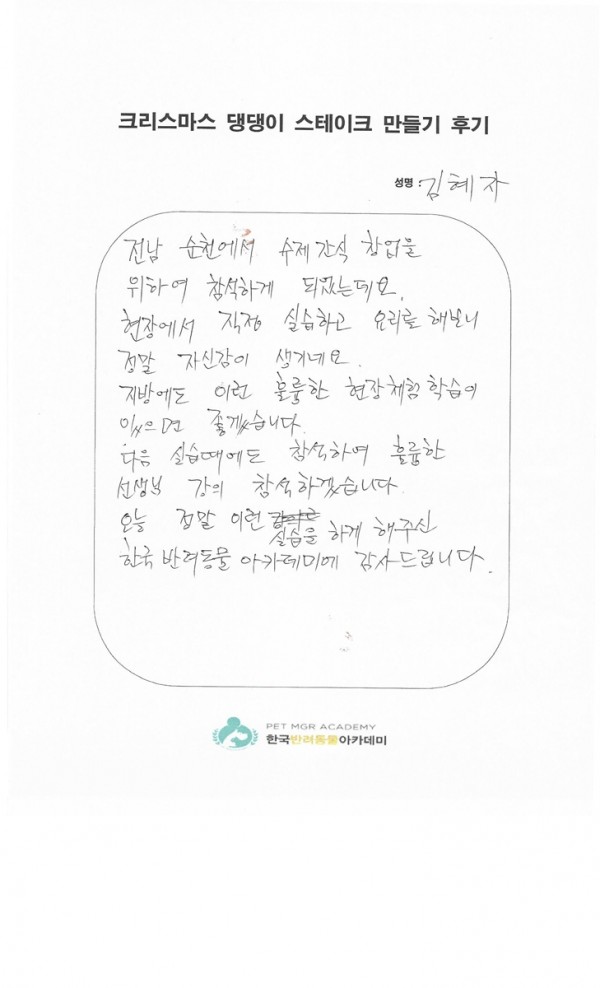 크리스마스 댕댕이 스테이크 만들기 후기
성명 : 김혜자
전남 순천에서 수제간식 창업을
위하여 참석하게 되었는데요.
현장에서 직접 실습하고 요리를 해보니
정말 자신감이 생기네요.
지방에도 이런 훌륭한 현장체험학습이
있으면 좋겠습니다.
다음 실습때에도 참석하여 훌륭한
선생님 강의 참석하겠습니다
오늘 정말 이런 실습을 하게 해주신
한국반려동물아카데미에 감사드립니다.
PET MGR ACADEMY
한국반려동물아카데미